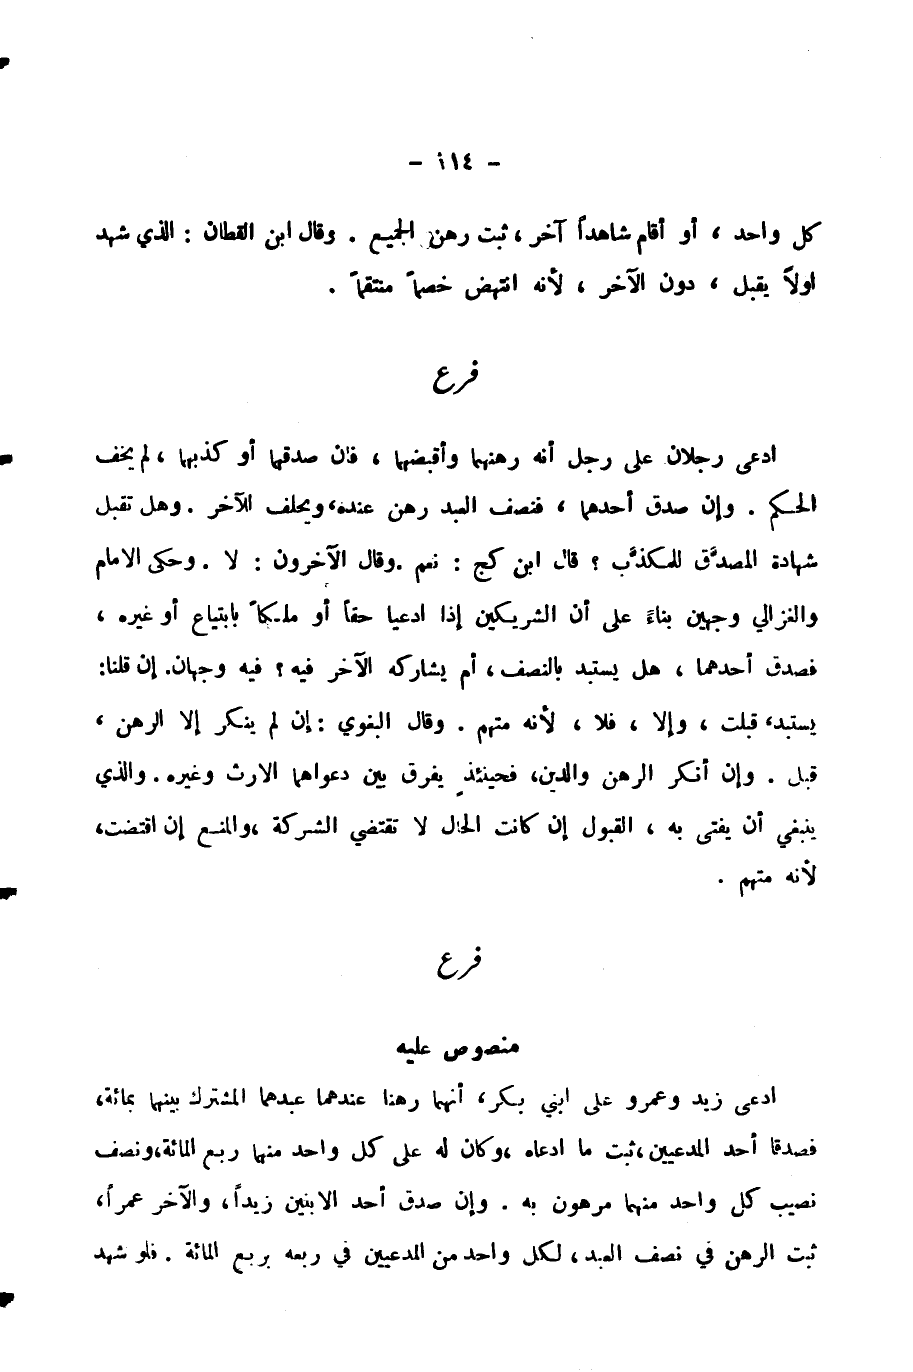 - ١١٤ -
كل واحد ، أو أقام شاهداً آخر ، ثبت رهن الجميع . وقال ابن القطان : الذي شهد
اولاً يقبل ، دون الآخر ، لأنه انتهض خصماً منتقماً .
فرع
ادعى رجلان على رجل أنه رهنهما وأقبضهما ، فان صدقهما أو كذبهما ، لم يخف
الحكم . وإن صدق أحدهما ، فنصف العبد رهن عنده، ويحلف الآخر . وهل تقبل
شهادة المصدَّق للمكذَّب ؟ قال ابن كج : نعم . وقال الآخرون : لا . وحكى الامام
والغزالي وجهين بناءً على أن الشريكين إذا ادعيا حقاً أو ملكاً بابتياع أو غيره ،
فصدق أحدهما ، هل يستبد بالنصف ، أم يشاركه الآخر فيه ؟ فيه وجهان. إن قلنا:
يستبد، قبلت ، وإلا ، فلا ، لأنه متهم . وقال البغوي : إن لم ينكر إلا الرهن ،
قبل . وإن أنكر الرهن والدين، فحينئذ يفرق بين دعواهما الارث وغيره . والذي
ينبغي أن يفتى به ، القبول إن كانت الحال لا تقتضي الشركة ، والمنع إن اقتضت،
لأنه متهم .
فرع
منصوص عليه
ادعى زيد وعمرو على ابني بكر، أنهما رهنا عندهما عبدهما المشترك بينهما بمائة،
فصدقا أحد المدعيين ، ثبت ما ادعاه ، وكان له على كل واحد منهما ربع المائة، ونصف
نصيب كل واحد منهما مرهون به . وإن صدق أحد الابنين زيداً، والآخر عمراً،
ثبت الرهن في نصف العبد ، لكل واحد من المدعيين في ربعه بربع المائة . فلو شهد